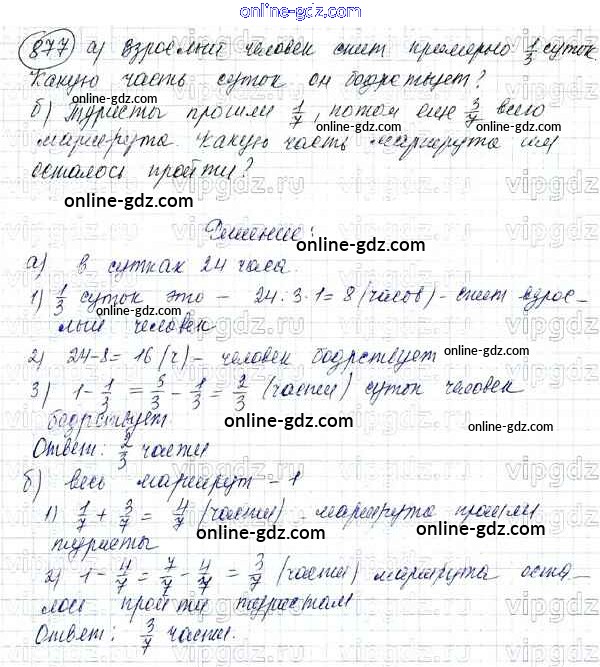 877 а) Взрослый человек спит примерно 1/3 суток.
Какую часть суток он бодрствует?
б) Туристы прошли 1/7, потом еще 3/7 всего
маршрута. Какую часть маршрута им
осталось пройти?
Решение:
а) В сутках 24 часа.
1) 1/3 суток это – 24 : 3 · 1 = 8 (часов) – спит взрос–
лый человек
2) 24-8= 16 (ч) – человек бодрствует
3) 1 - 1/3 = 3/3 - 1/3 = 2/3 (части) суток человек
бодрствует.
Ответ: 2/3 части
б) весь маршрут – 1
1) 1/7 + 3/7 = 4/7 (части) – маршрута прошли
туристы
2) 1 - 4/7 = 7/7 - 4/7 = 3/7 (части) маршрута оста–
лось пройти туристам
Ответ: 3/7 части.
online-gdz.com
vipgdz.ru